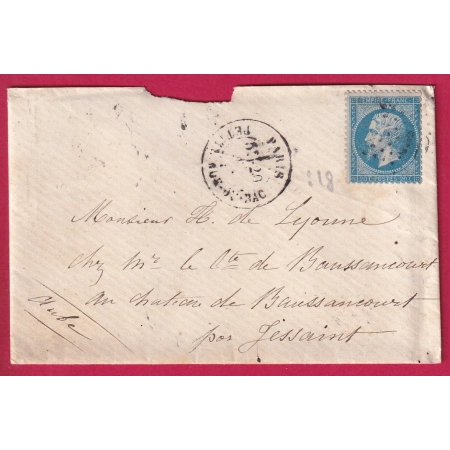 EMPIRE FRANC
20 C POSTES 20 C
PARIS
818
Monsieur H. de Lyonne
chez Mr le Cte de Baussancourt
au chateau de Baussancourt
par Jessaint
Aube